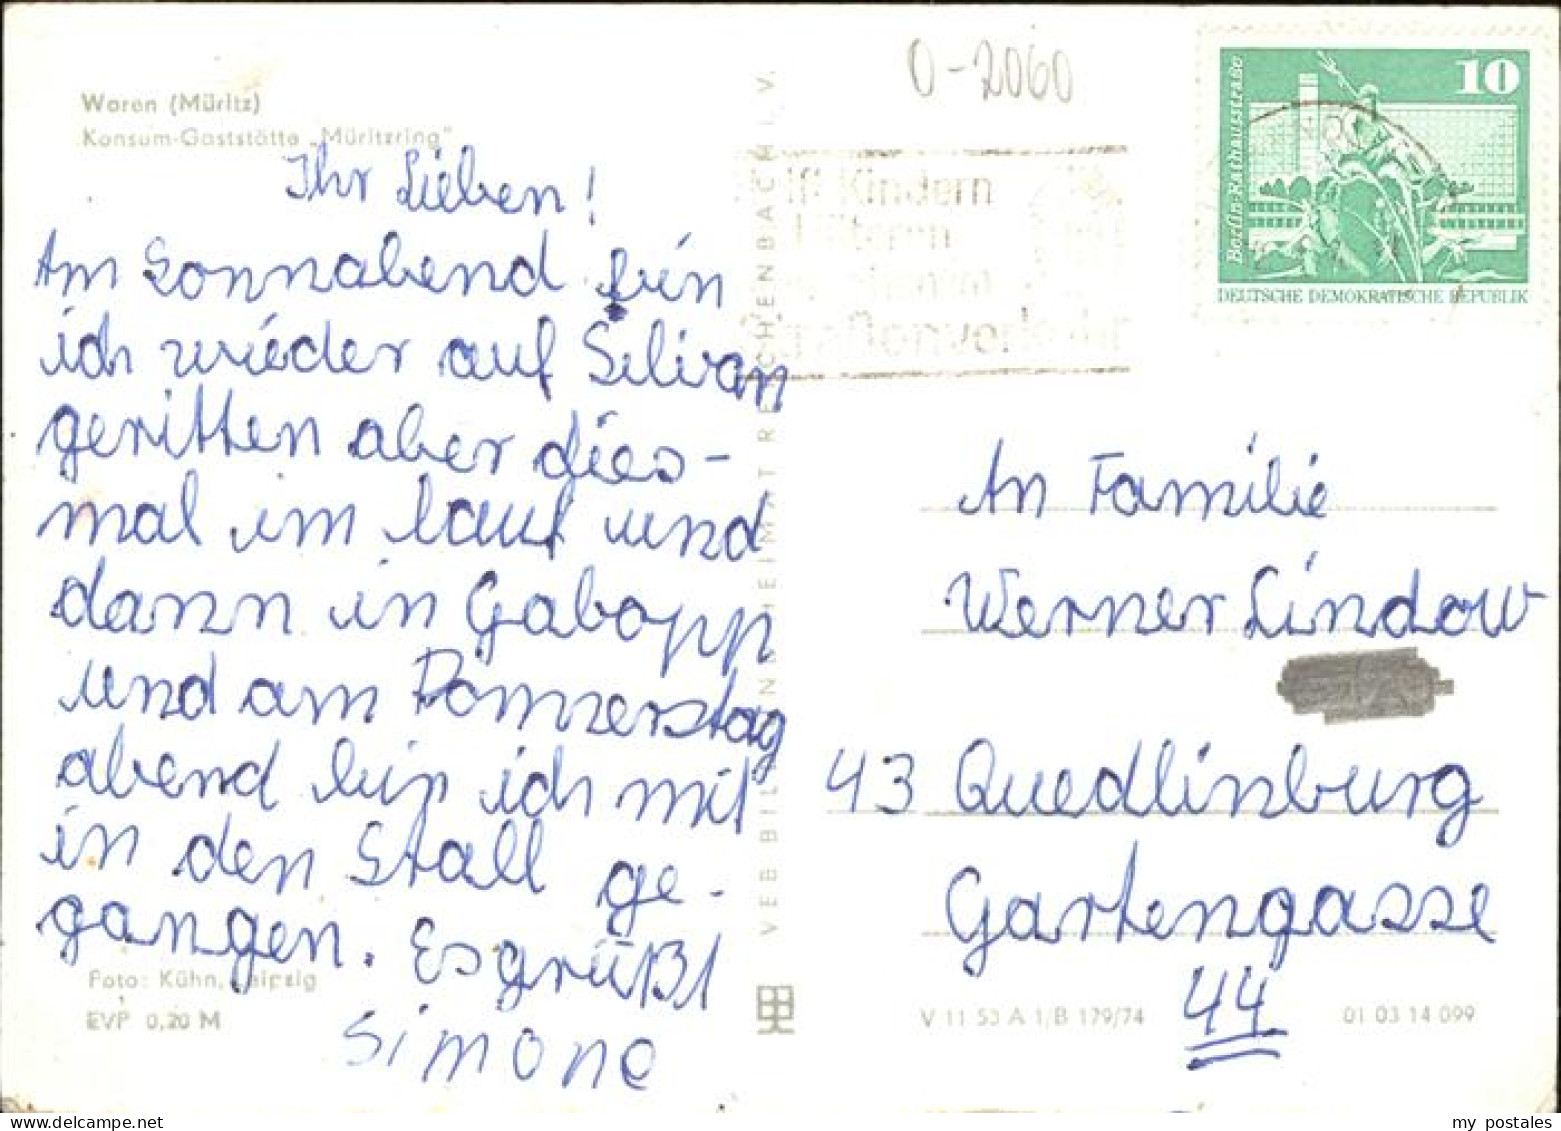 Waren (Müritz)
Konsum-Gaststätte „Müritzring"
Ihr Lieben!
Am Sonnabend bin
ich wieder auf Silvan
geritten aber dies-
mal im lauf und
dann in Gabopp
und am Donnerstag
abend bin ich mit
in den Stall ge-
gangen. Es grüßt
Simone
Foto: Kühn, Leipzig
EVP 0,20 M
VEB BILD UND HEIMAT REICHENBACH I. V.
0-2060
Kindern
10
Berlin-Rathausstraße
DEUTSCHE DEMOKRATISCHE REPUBLIK
An Familie
Werner Lindow
43 Quedlinburg
Gartengasse
44
V 11 50 A 1/B 179/74
01 03 14 099
my postales